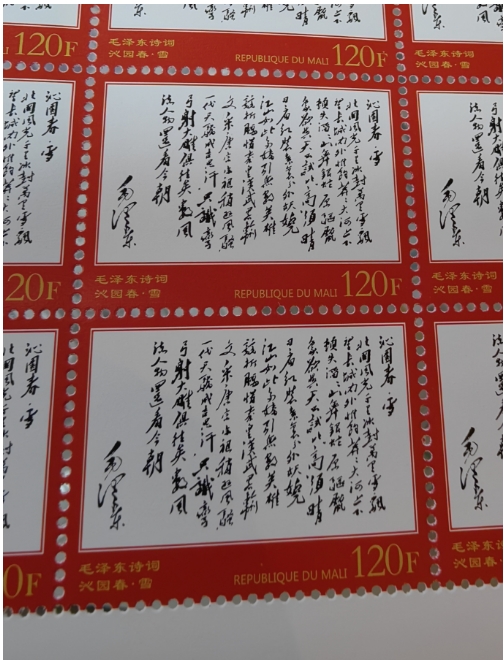 120F
毛泽东诗词
沁园春·雪
REPUBLIQUE DU MALI 120F
毛泽东诗词
沁园春·雪
沁園春·雪
北國風光千里冰封萬里雪飄
望長城内外惟餘莽莽大河上下
頓失滔滔山舞銀蛇原馳蠟
象欲與天公試比高須晴
日看紅裝素裹分外妖嬈
江山如此多嬌引無數英雄
競折腰惜秦皇漢武略輸
文采唐宗宋祖稍遜風騷
一代天驕成吉思汗只識彎
弓射大雕俱往矣數風
流人物還看今朝
毛澤東
20F
毛泽东诗词
沁园春·雪
REPUBLIQUE DU MALI 120F
毛泽东诗词
沁园春·雪
沁園春·雪
北國風光千里冰封萬里雪飄
望長城内外惟餘莽莽大河上下
頓失滔滔山舞銀蛇原馳蠟
象欲與天公試比高須晴
日看紅裝素裹分外妖嬈
江山如此多嬌引無數英雄
競折腰惜秦皇漢武略輸
文采唐宗宋祖稍遜風騷
一代天驕成吉思汗只識彎
弓射大雕俱往矣數風
流人物還看今朝
毛澤東
0F
毛泽东诗词
沁园春·雪
REPUBLIQUE DU MALI 120F
毛泽东诗词
沁园春·雪